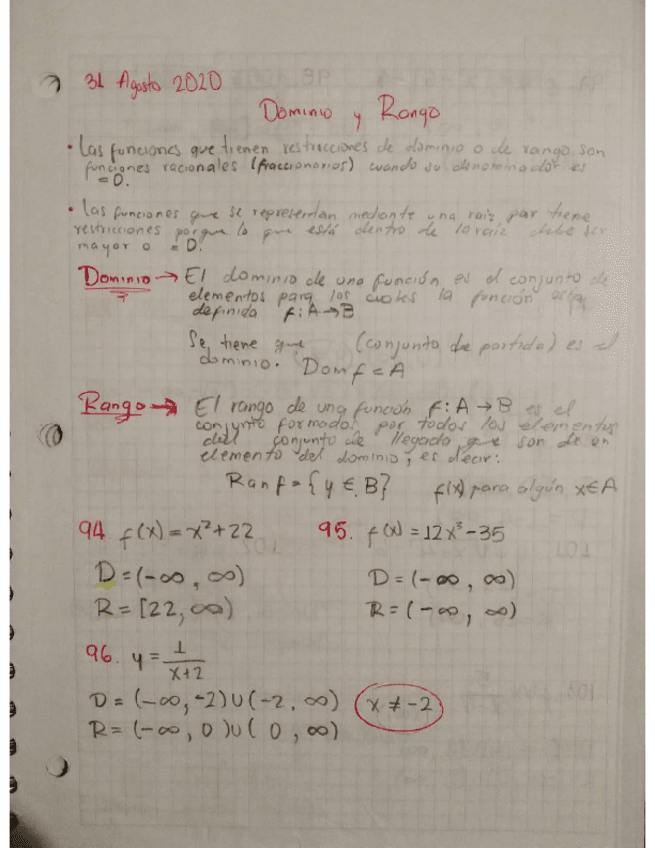 31 Agosto 2020
Dominio y Rango
• Las funciones que tienen restricciones de dominio o de rango son
funciones racionales (fraccionarios) cuando su denominador es
= 0.
• las funciones que se representan mediante una raiz par tiene
restricciones porque lo que está dentro de la raiz debe ser
mayor o = 0.
Dominio → El dominio de una función es el conjunto de
elementos para los cuales la función está
definida f: A → B
Se tiene que (conjunto de partida) es el
dominio. Dom f = A
Rango → El rango de una función f: A → B es el
conjunto formados por todos los elementos
del conjunto de llegada que son de un
elemento del dominio, es decir:
Ran f = { y ∈ B} f(x) para algún x ∈ A
94 f(x) = x² + 22 95. f(x) = 12x³ - 35
D = (-∞, ∞) D = (-∞, ∞)
R = [22, ∞) R = (-∞, ∞)
96. y = 1/(x+2)
D = (-∞, -2) ∪ (-2, ∞) x ≠ -2
R = (-∞, 0) ∪ (0, ∞)